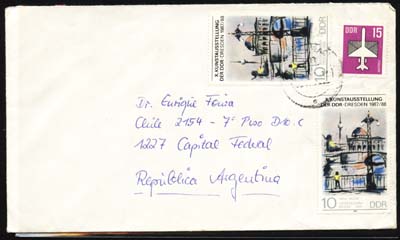 X. KUNSTAUSSTELLUNG
DER DDR · DRESDEN 1987/88
10 DDR
DDR 15
Chile 2154 - 7º Piso
1227 Capital Federal
República Argentina
X. KUNSTAUSSTELLUNG
DER DDR · DRESDEN 1987/88
10 DDR